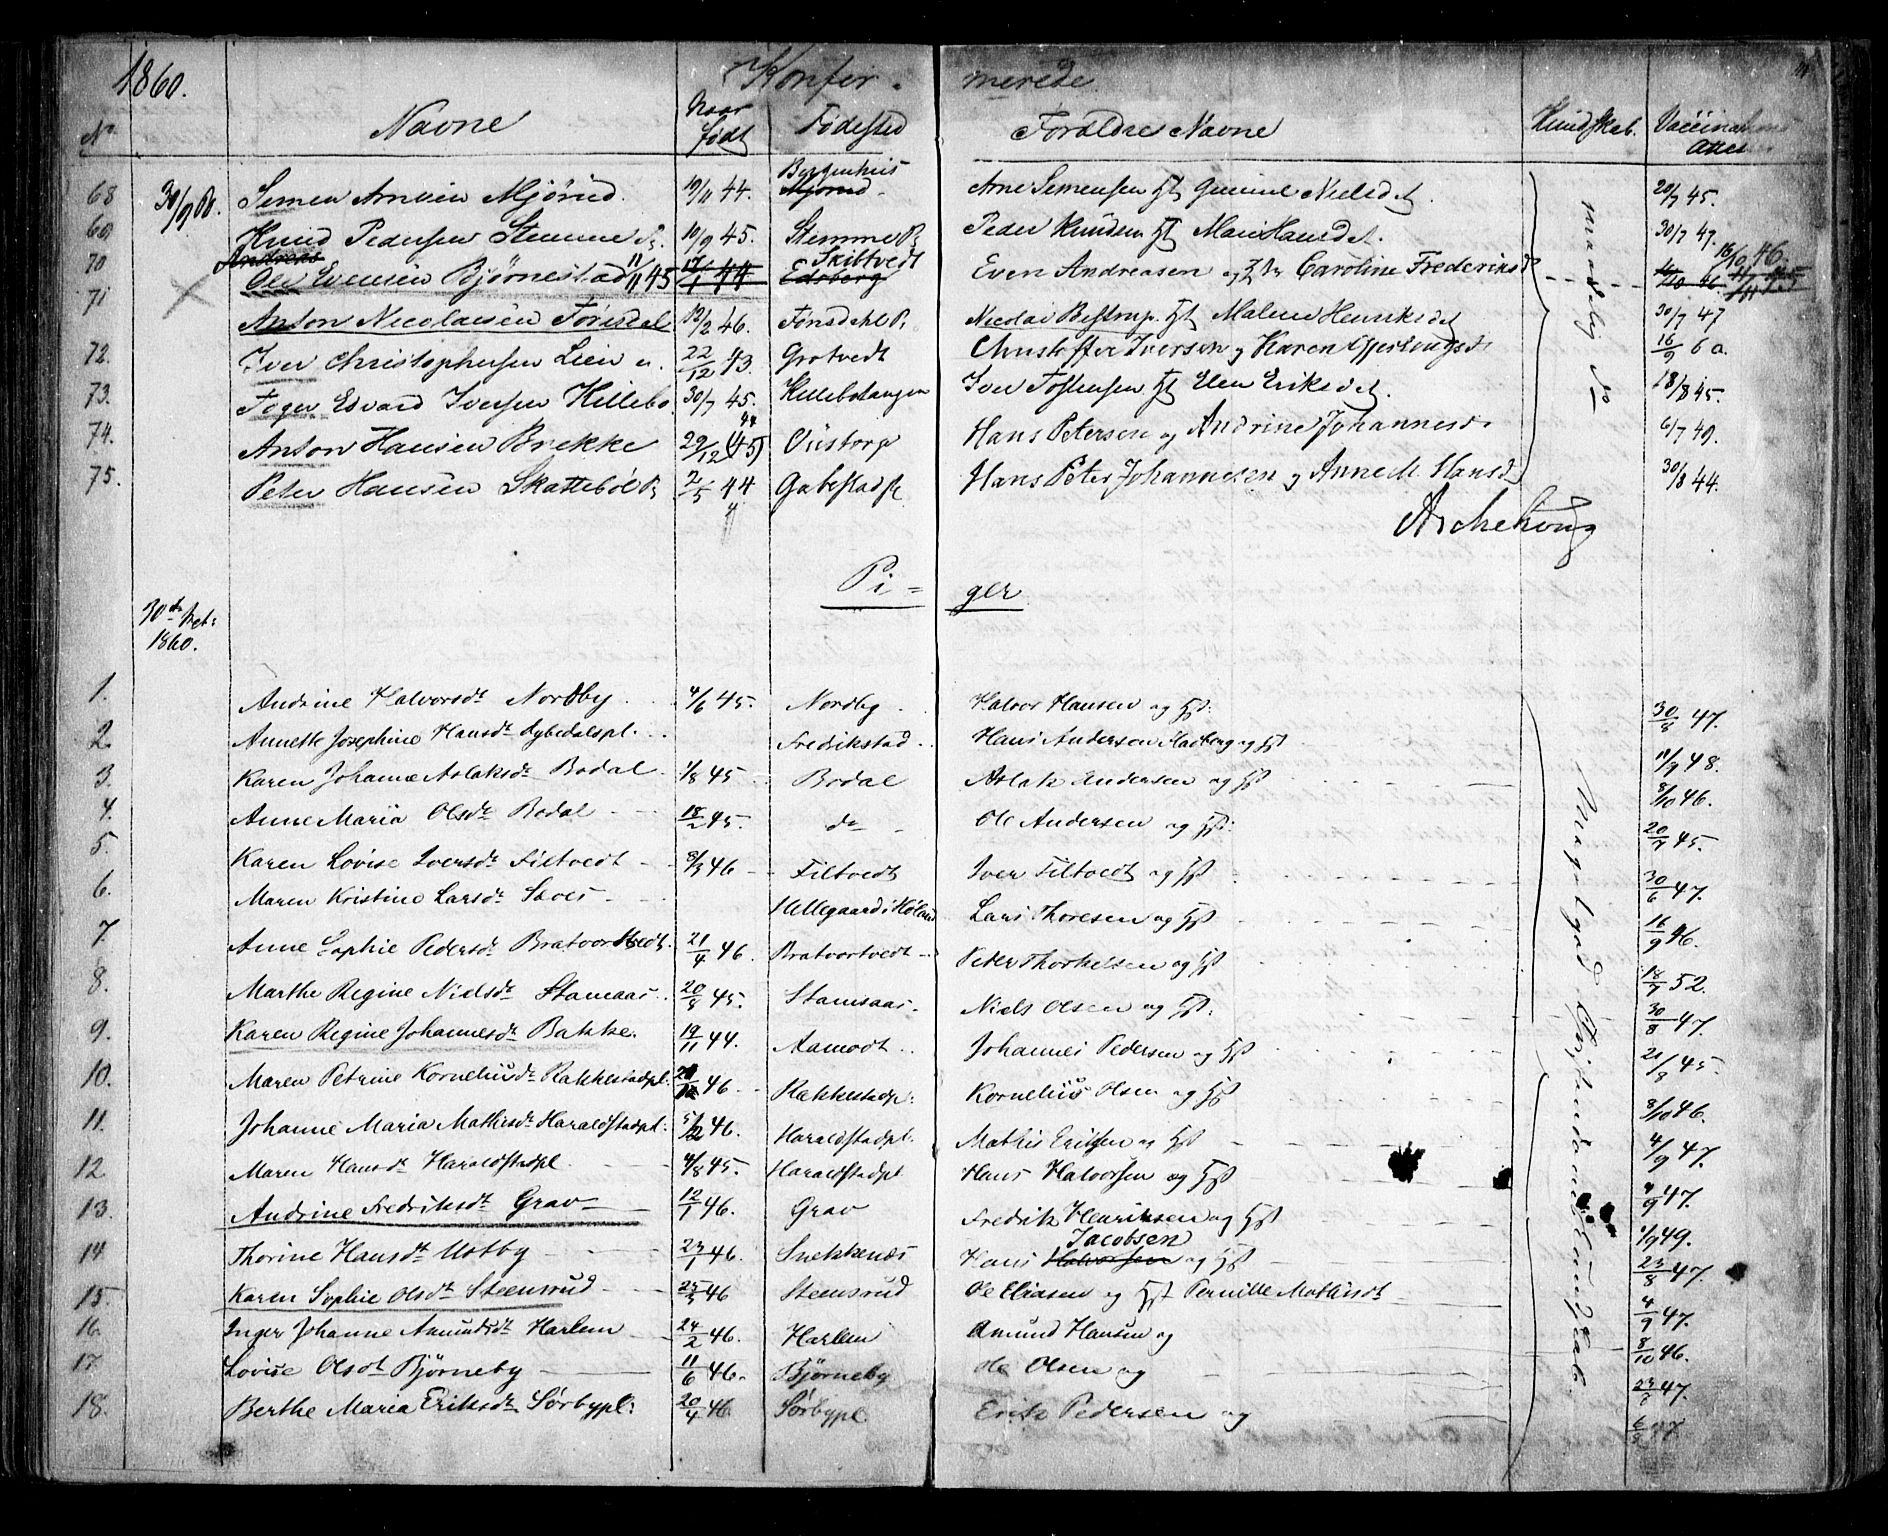 1860. Konfir- merede
No Navne Naar født Fødested Forældre Navne Kundskab. Vaccinations Attest
68 30/9 60. Semen Arnesen Mjørud. 19/11 44. Mjørud Arne Semensen Hst Gunnil Nielsdt. 20/7 45.
69 Knud Pedersen Stemme Pl. 10/9 45. Stemme Pl Peder Knudsen Hst Mari Hansdt. 30/7 47.
70 Andreas Ole Evensen Bjørnestad 11/11 45 17/1 44 Skibtvedt Edsberg Even Andreasen og Hst Caroline Frederiksd 16/10 46
71 Anton Nicolaisen Fønsdal 19/2 46. Fonsdahl P. Nicolai Hst Malene Henriksdt 30/7 47
72. Iver Christophersen Lien 22/12 43. Grotvedt Christoffer Iversen og Karen 16/9 60.
73. Edvard Iversen Hillebo. 30/7 45. Hillebotangen Iver Tostensen Hst Elen Eriksdt. 18/8 45.
74. Anton Hansen Brekke 29/12 (45) 44 Hans Petersen og Andrine Johannesd. 6/7 49.
75. Peter Hansen Skattebøl Pl 2/5 44 Gabestad Hans Peter Johannesen og Anne M. Hansd 30/8 44.
maadelig do
Pi- ger
30te
1860.
1. Andrine Halvorsdt Nordby 4/6 45. Nordby Halvor Hansen og Hst. 30/8 47.
2. Annette Josephine Hansdt Fredrikstad Hans Andersen og Hst 11/9 48.
3. Karen Johanne Aslaksdt Bodal 1/8 45 Bodal Aslak Andersen og Hst 8/10 46.
4. Anne Maria Olsdt Bodal 18/2 45. do Ole Andersen og Hst. 20/7 45.
5. Karen Lovise Iversdt Filtvedt 8/3 46 Filtvedt Iver Filtvedt og Hst 30/6 47.
6. Maren Kristine Larsdt Hellegaard i Høland Lars Thoresen og Hst 16/9 46.
7. Anne Sophie Pedersdt Bratvortvedt 21/4 46. Bratvortvedt Peter Thorkelsen og Hst 18/7 52.
8. Marthe Regine Nielsdt Stamsaas 20/8 45. Stamsaas. Niels Olsen og Hst. 30/8 47.
9. Karen Regine Johannesdt Bakke. 19/11 44. Aamodt Johannes Pedersen og Hst 21/8 45.
10. Maren Petrine Korneliusdt Rakkestadpl. 46 Rakkestadpl. Kornelius Olsen og Hst 8/10 46.
11. Johanne Maria Mathisdt Haraldstadpl. 5/2 46. Haraldstadpl. Mathis Eriksen og Hst 4/9 47.
12 Maren Hansdt Haraldstadpl 4/8 45. Haraldstadpl Hans Halvorsen og Hst 4/9 47.
13. Andrine Fredriksdt Grav 12/1 46. Grav Fredrik Henriksen og Hst 49.
14 Thorine Hansdt Motby 23/1 46. Snekkenæs Hans Halvorsen Jacobsen og Hst 23/8 47.
15. Karen Sophie Olsdt Steensrud 25/3 46 Steensrud Ole Eliasen og Hst Pernille Mathisdt 4/9 47.
16. Inger Johanne Amundsdt Harlem 24/2 46. Harlem Amund Hansen og 8/10 46.
17. Lovise Olsdt Bjørneby 11/6 46. Bjørneby Ole Olsen og 23/8 47.
18. Berthe Maria Eriksdt Sørbypl. 20/4 46 Sørbypl. Erik Pedersen og 47.
Meget god Christendomskundskab.